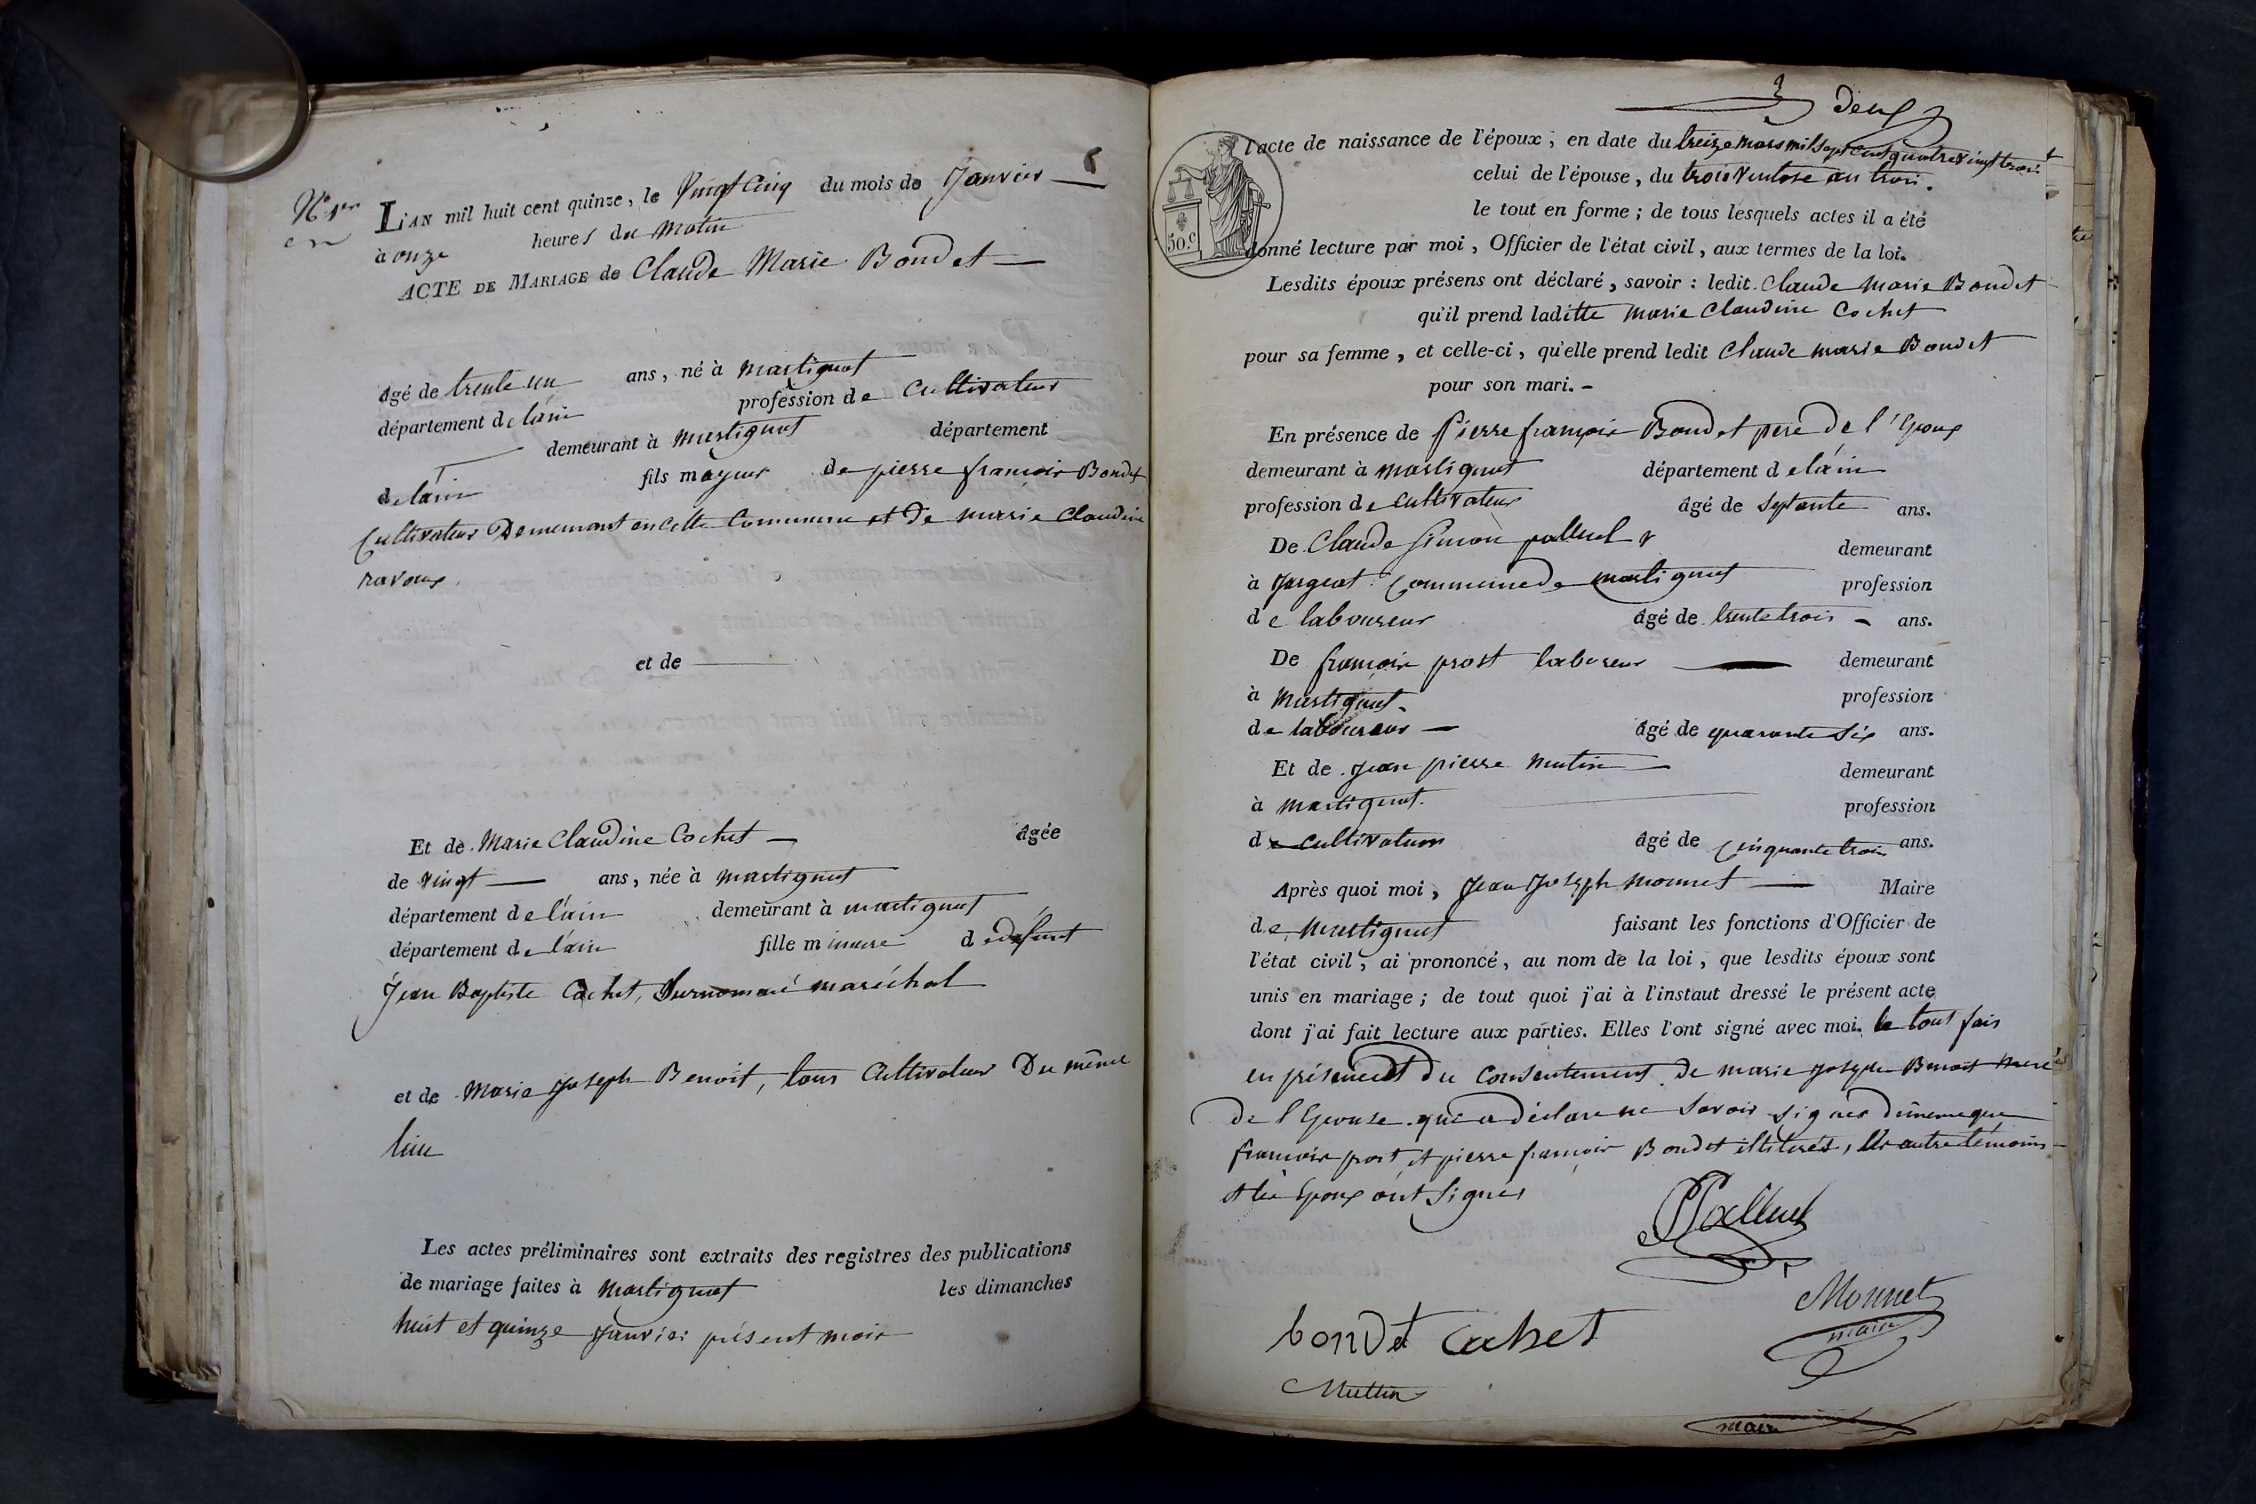 N.º 1er
L'AN mil huit cent quinze, le Vingt Cinq du mois de Janvier
à onze heures du Matin
ACTE DE MARIAGE de Claude Marie Bondet
âgé de trente un ans, né à martignat
département de l'ain profession de Cultivateur
demeurant à martignat département
de l'ain fils mageur de pierre francois Bondet
Cultivateur Demeurant en cette Commune et De marie Claudine
ravoux.
et de
Et de Marie Claudine Cochet âgée
de vingt ans, née à martignat
département de l'ain demeurant à martignat
département de l'ain fille mineure de defunt
Jean Baptiste Cochet, Surnommé maréchal
et de Marie Joseph Benoit, tous Cultivateur Du même
lieu
Les actes préliminaires sont extraits des registres des publications
de mariage faites à martignat les dimanches
huit et quinze Janvier présent mois
deux
l'acte de naissance de l'époux, en date du treize mars mil sept cent quatre vingt trois
celui de l'épouse, du trois ventose an trois.
le tout en forme; de tous lesquels actes il a été
50.c
donné lecture par moi, Officier de l'état civil, aux termes de la loi.
Lesdits époux présens ont déclaré, savoir: ledit Claude marie Bondet
qu'il prend laditte marie Claudine Cochet
pour sa femme, et celle-ci, qu'elle prend ledit Claude marie Bondet
pour son mari.
En présence de Pierre françois Bondet pere de l'Epoux
demeurant à martignat département de l'ain
profession de cultivateur âgé de septante ans.
De Claude Simon palluel demeurant
à Jargeat Commune de martignat profession
de laboureur âgé de trente trois ans.
De françois prost laboureur demeurant
à Martignat profession
de laboureur âgé de quarante six ans.
Et de Jean pierre mutin demeurant
à martignat. profession
de cultivateur âgé de cinquante trois ans.
Après quoi moi, Jean Joseph monnet Maire
de martignat faisant les fonctions d'Officier de
l'état civil, ai prononcé, au nom de la loi, que lesdits époux sont
unis en mariage; de tout quoi j'ai à l'instaut dressé le présent acte
dont j'ai fait lecture aux parties. Elles l'ont signé avec moi. le tout fais
en présence et du Consentement de marie Joseph Benoit mere
de l'Epouse qui a déclare ne Savoir signer dememe que
francois prost et pierre francois Bondet illiterés, les autre témoins
et les Epoux ont Signés
Palluel
Monnet
maire
bondet Cochet
Muttin
maire